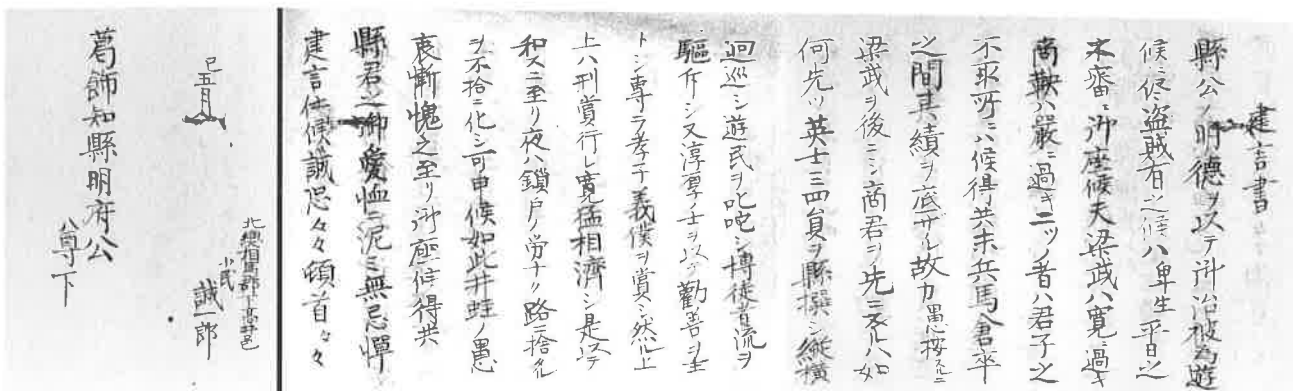 建言書
縣公ノ明德ヲ以テ御治被為遊
候ニ付盗賊有之候ハ卑生平日之
不審ニ御座候夫梁武ハ寛ニ過キ
商鞅ハ嚴ニ過キ二ツノ者ハ君子之
不取所ニハ候得共未兵馬倉卒
之間其績ヲ底ザル故カ愚心按スルニ
梁武ヲ後ニシ商君ヲ先ニスルハ如
何先ツ英士三四員ヲ縣撰シ縦横
迴巡シ遊民ヲ叱咜シ博徒者流ヲ
驅斥シ又淳厚士ヲ以テ勸善ヲ主
トシ専ラ孝子義僕ヲ賞シ然ル上
上ハ刑賞行レ寛猛相濟シ是以テ
和スニ至リ夜ハ鎖戸ノ労ナク路ニ拾タル
ヲ不拾ニ化シ可申候如此井蛙ノ愚
衷慚愧之至リ御座候得共
縣君之御愛恤ニ泥ミ無忌憚
建言仕候誠恐々々頓首々々
北總相馬郡下高井邑
小民
誠一郎
巳五月
葛飾知縣明府公
尊下